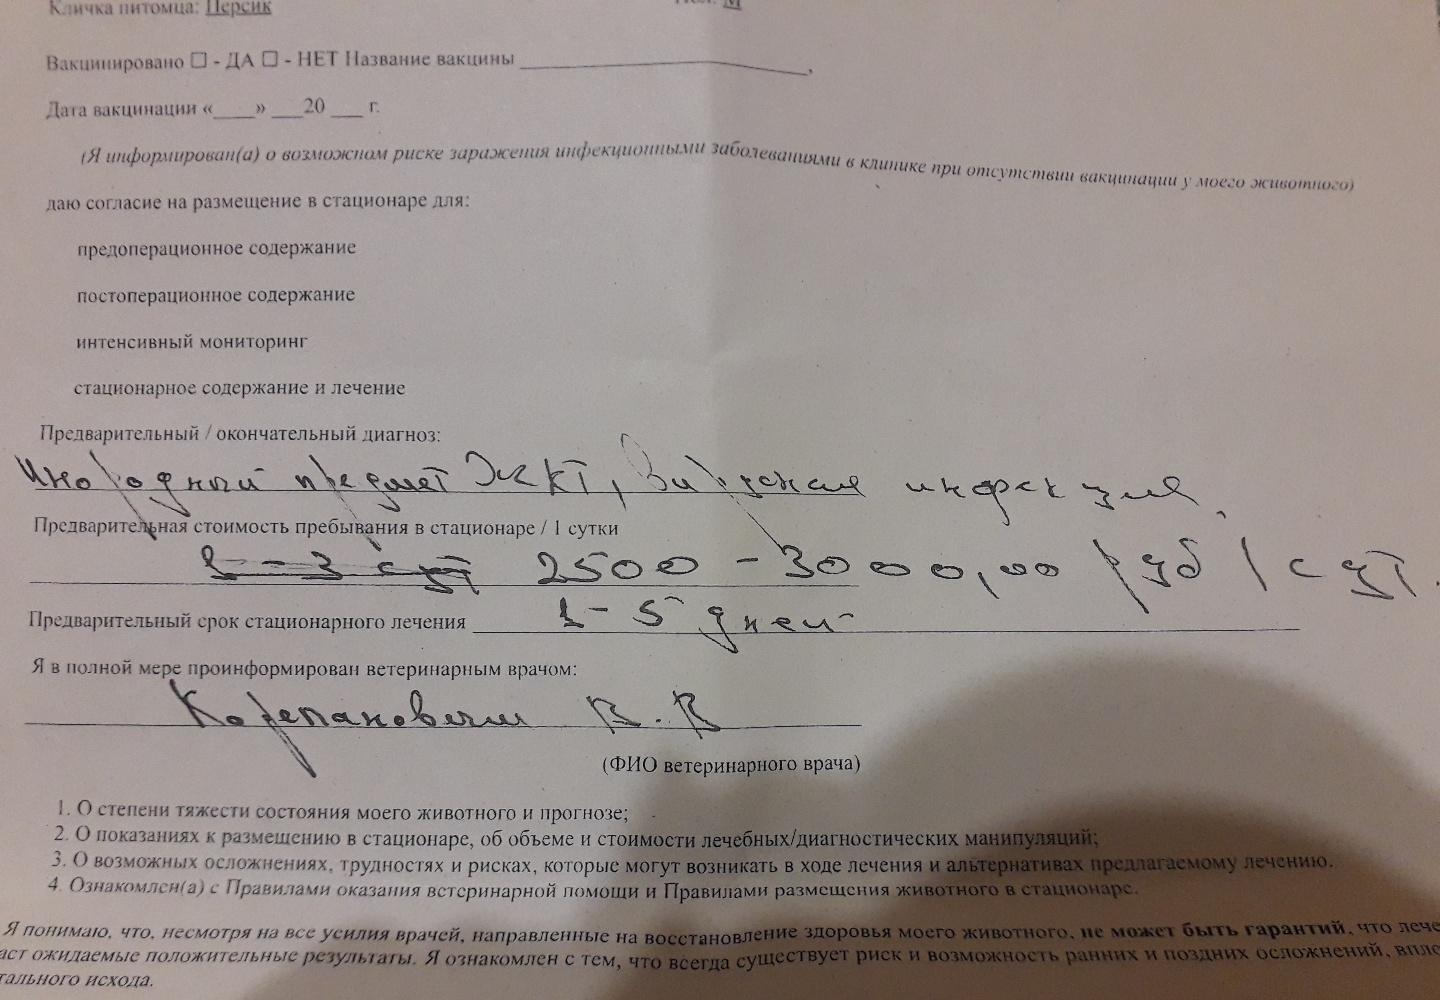 Кличка питомца: Персик Пол: М
Вакцинировано ☐ - ДА ☐ - НЕТ Название вакцины ____________________,
Дата вакцинации «____» ___20 ___ г.
(Я информирован(а) о возможном риске заражения инфекционными заболеваниями в клинике при отсутствии вакцинации у моего животного)
даю согласие на размещение в стационаре для:
предоперационное содержание
постоперационное содержание
интенсивный мониторинг
стационарное содержание и лечение
Предварительный / окончательный диагноз:
Инородный предмет ЖКТ, Вирусная инфекция.
Предварительная стоимость пребывания в стационаре / 1 сутки
1 - 3 сут 2500 - 3000,00 руб / сут.
Предварительный срок стационарного лечения 1 - 5 дней
Я в полной мере проинформирован ветеринарным врачом:
В.В
(ФИО ветеринарного врача)
1. О степени тяжести состояния моего животного и прогнозе;
2. О показаниях к размещению в стационаре, об объеме и стоимости лечебных/диагностических манипуляций;
3. О возможных осложнениях, трудностях и рисках, которые могут возникать в ходе лечения и альтернативах предлагаемому лечению.
4. Ознакомлен(а) с Правилами оказания ветеринарной помощи и Правилами размещения животного в стационаре.
Я понимаю, что, несмотря на все усилия врачей, направленные на восстановление здоровья моего животного, не может быть гарантий, что лече
аст ожидаемые положительные результаты. Я ознакомлен с тем, что всегда существует риск и возможность ранних и поздних осложнений, впло
тального исхода.